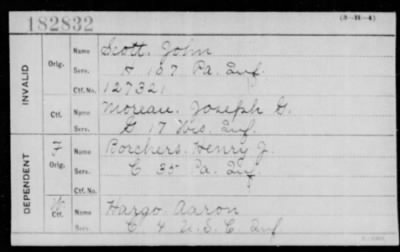 182832
(3-H-4)
INVALID
Orig.
Name Scott, John
Serv. K 187 Pa. Inf.
Ctf. No. 127321
Ctf.
Name Moreau, Joseph G.
Serv. G 17 Wis. Inf.
DEPENDENT
F
Orig.
Name Borchers, Henry J.
Serv. C 35 Pa. Inf.
Ctf. No.
W
Ctf.
Name Hargo Aaron
Serv. C 4 U.S.C. Inf